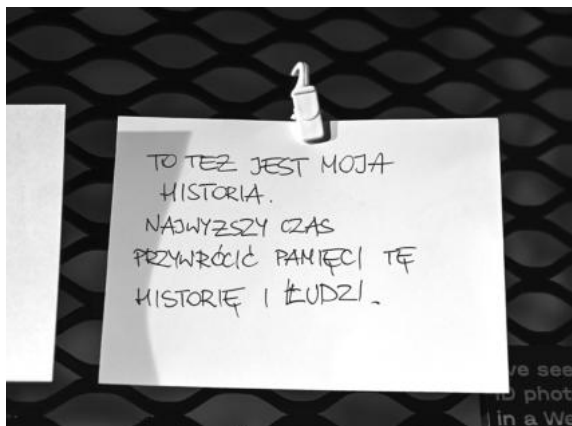 TO TEŻ JEST MOJA
HISTORIA.
NAJWYZSZY CZAS
PRZYWRÓCIĆ PAMIĘCI TĘ
HISTORIĘ I ŁUDZI.
ve see
ID phot
in a We